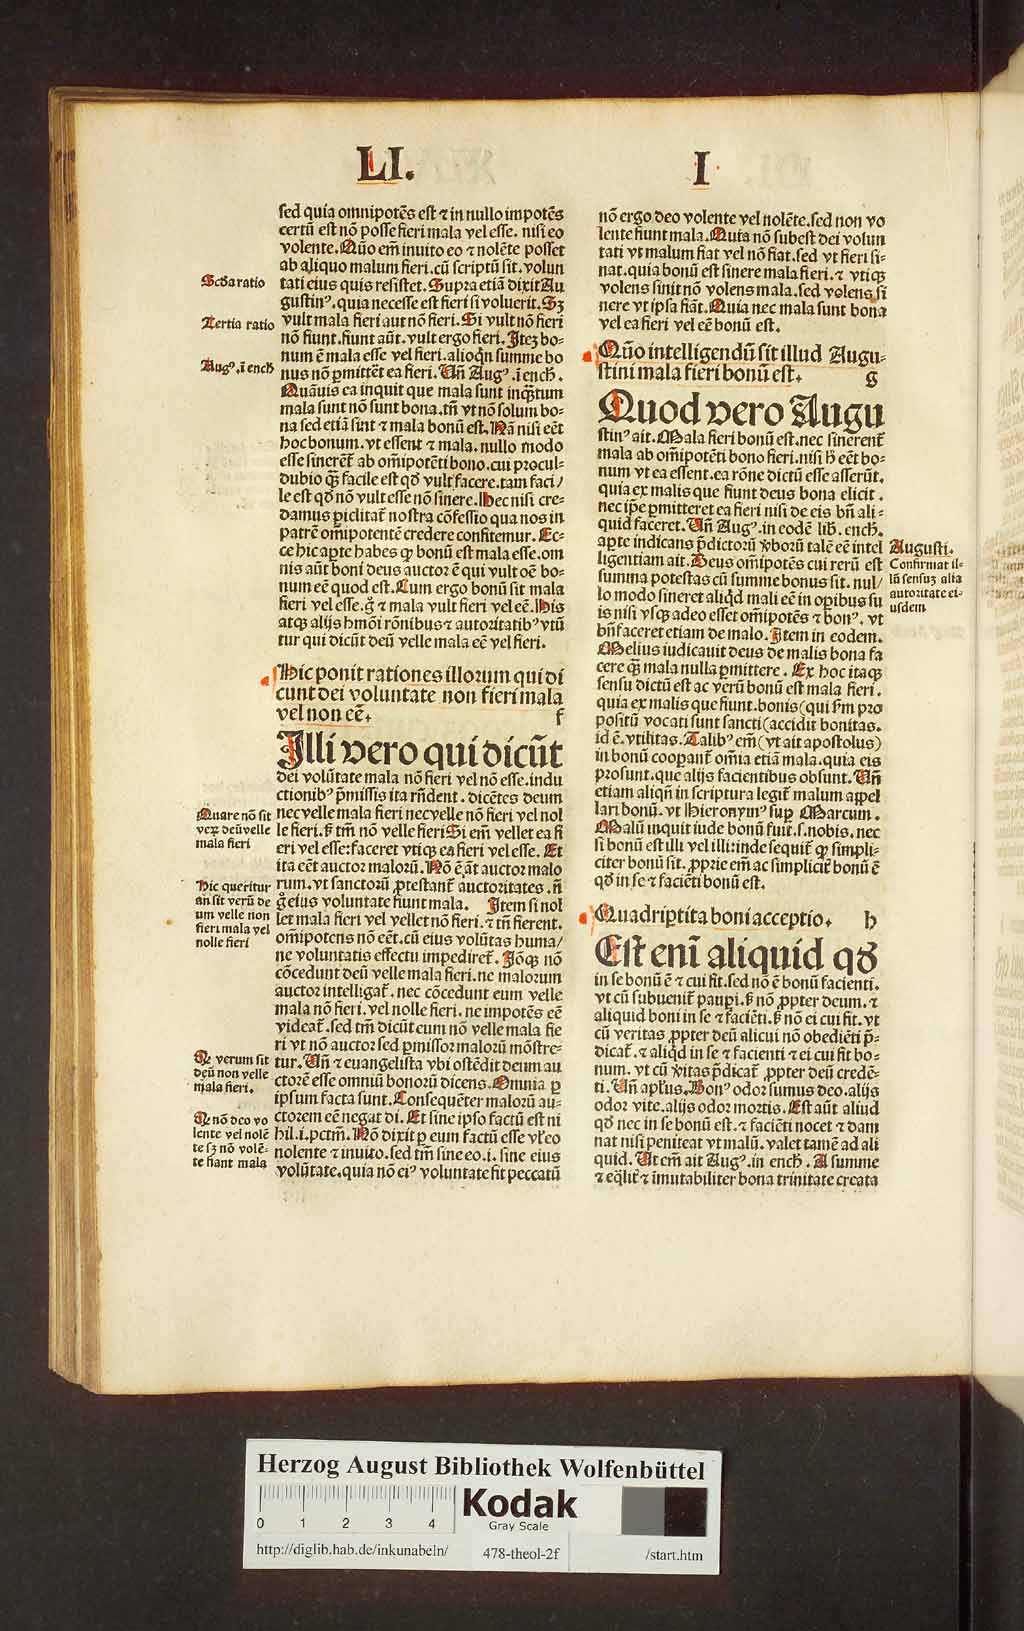 LI.
I
sed quia omnipotēs est ⁊ in nullo impotēs
certū est nō posse fieri mala vel esse. nisi eo
volente. Quō em̄ inuito eo ⁊ nolēte posset
ab aliquo malum fieri. cū scriptū sit. volun
tati eius quis resistet. Supra etiā dixit Au
gustinꝰ. quia necesse est fieri si voluerit. Sꝫ
vult mala fieri aut nō fieri. Si vult nō fieri
nō fiunt. fiunt aūt. vult ergo fieri. Iteꝫ bo-
num ē mala esse vel fieri. alioqn̄ summe bo
nus nō ꝑmittēt ea fieri. Un̄ Augꝰ .ī ench̄.
Quāuis ea inquit que mala sunt inqꝫtum
mala sunt nō sunt bona. tn̄ vt nō solum bo-
na sed etiā sint ⁊ mala bonū est. Nā nisi eēt
hoc bonum. vt essent ⁊ mala. nullo modo
esse sinerēt ab om̄ipotēti bono. cui procul-
dubio qꝫ facile est qd̄ vult facere. tam faci/
le est qd̄ nō vult esse nō sinere. Hec nisi cre-
damus ꝑiclitat̄ nostra cōfessio qua nos in
patrē om̄ipotentē credere confitemur. Ec-
ce hic apte habes ꝙ bonū est mala esse. om
nis aūt boni deus auctor ē qui vult oē bo-
num eē quod est. Cum ergo bonū sit mala
fieri vel esse. g̊ ⁊ mala vult fieri vel eē. His
atqꝫ alijs hmōi rōnibus ⁊ autoritatibꝰ vtū
tur qui dicūt deū velle mala eē vel fieri.
Hic ponit rationes illorum qui di
cunt dei voluntate non fieri mala
vel non eē. f
Illi vero qui dicūt
dei volūtate mala nō fieri vel nō esse. indu
ctionibꝰ p̄missis ita rn̄dent. dicētes deum
nec velle mala fieri nec velle nō fieri vel nol
le fieri. sꝫ tm̄ nō velle fieri Si em̄ vellet ea fi
eri vel esse: faceret vtiqꝫ ea fieri vel esse. Et
ita eēt auctor malorū. Nō ē āt auctor malo
rum. vt sanctorū ꝓtestant̄ auctoritates. n̄
g̊ eius voluntate fiunt mala. Item si nol
let mala fieri vel vellet nō fieri. ⁊ tn̄ fierent.
om̄ipotens nō eēt. cū eius volūtas huma/
ne voluntatis effectu impediret̄. Iōqꝫ nō
cōcedunt deū velle mala fieri. ne malorum
auctor intelligat̄. nec cōcedunt eum velle
mala nō fieri. vel nolle fieri. ne impotēs eē
videat̄. sed tm̄ dicūt eum nō velle mala fie
ri vt nō auctor sed ꝑmissor malorū mōstre-
tur. Un̄ ⁊ euangelista vbi ostēdit deum au
ctorē esse omniū bonorū dicens. Omnia ꝑ
ipsum facta sunt. Consequēter malorū au-
ctorem eē negat di. Et sine ipso factū est ni
hil .i. pctm̄. Nō dixit ꝑ eum factū esse vl̓ eo
nolente ⁊ inuito. sed tm̄ sine eo .i. sine eius
volūtate. quia nō eiꝰ voluntate fit peccatū
Scd̄a ratio
Tertia ratio
Augꝰ. ī ench̄
Quare nō sit
veꝝ deū velle
mala fieri
Hic queritur
an̄ sit verū de
um velle non
fieri mala vel
nolle fieri
Ꝙ verum sit
deū non velle
mala fieri.
Ꝙ nō deo vo
lente vel nolē
te sꝫ nō volē-
te fiant mala
nō ergo deo volente vel nolēte. sed non vo
lente fiunt mala. Quia nō subest dei volun
tati vt malum fiat vel nō fiat. sed vt fieri si-
nat. quia bonū est sinere mala fieri. ⁊ vtiqꝫ
volens sinit nō volens mala. sed volens si
nere vt ipsa fiāt. Quia nec mala sunt bona
vel ea fieri vel eē bonū est.
Quō intelligendū sit illud Augu-
stini mala fieri bonū est. g
Quod vero Augu
stinꝰ ait. Mala fieri bonū est. nec sinerent̄
mala ab om̄ipotēti bono fieri. nisi h̄ eēt bo-
num vt ea essent. ea rōne dictū esse asserūt.
quia ex malis que fiunt deus bona elicit.
nec ip̄e ꝑmitteret ea fieri nisi de eis bn̄ ali-
quid faceret. Un̄ Augꝰ. in eodē lib̄. ench̄.
aꝑte indicans p̄dictorū v̓borū talē eē intel
ligentiam ait. Deus om̄ipotēs cui rerū est
summa potestas cū summe bonus sit. nul/
lo modo sineret aliqd̄ mali eē in oꝑibus su
is nisi vsqꝫ adeo esset om̄ipotēs ⁊ bonꝰ. vt
bn̄ faceret etiam de malo. Item in eodem.
Melius iudicauit deus de malis bona fa
cere qꝫ mala nulla ꝑmittere. Ex hoc itaqꝫ
sensu dictū est ac verū bonū est mala fieri.
quia ex malis que fiunt. bonis (qui sm̄ pro
positū vocati sunt sancti (accidit bonitas.
id ē. vtilitas. Talibꝰ em̄ (vt ait apostolus)
in bonū coopant̄ om̄ia etiā mala. quia eis
prosunt. que alijs facientibus obsunt. Un̄
etiam aliqn̄ in scriptura legit̄ malum appel
lari bonū. vt Hieronymꝰ suꝑ Marcum.
Malū inquit iude bonū fuit. s. nobis. nec
si bonū est illi vel illi: inde sequit̄ ꝙ simpli-
citer bonū sit. ꝓprie em̄ ac simplicit̄ bonū ē
qd̄ in se ⁊ faciēti bonū est.
Quadriꝑtita boni acceptio. h
Est eni̅ aliquid qd̄
in se bonū ē ⁊ cui fit. sed nō ē bonū facienti.
vt cū subuenit̄ pauꝑi. sꝫ nō ꝓpter deum. ⁊
aliquid boni in se ⁊ faciēti. sꝫ nō ei cui fit. vt
cū veritas ꝓpter deū alicui nō obediēti p̄-
dicat̄. ⁊ aliqd̄ in se ⁊ facienti ⁊ ei cui fit bo-
num. vt cū v̓itas p̄dicat̄ ꝓpter deū credē-
ti. Un̄ apl̄us. Bonꝰ odor sumus deo. alijs
odor vite. alijs odor mortis. Est aūt aliud
qd̄ nec in se bonū est. ⁊ faciēti nocet ⁊ dam
nat nisi peniteat vt malū. valet tamē ad ali
quid. Ut em̄ ait Augꝰ. in ench̄. A summe
⁊ eq̄lit̄ ⁊ īmutabiliter bona trinitate creata
Augusti.
Confirmat il-
lū sensuꝫ alia
autoritate ei-
usdem
Herzog August Bibliothek Wolfenbüttel
0 1 2 3 4
Kodak
Gray Scale
http://diglib.hab.de/inkunabeln/ 478-theol-2f /start.htm